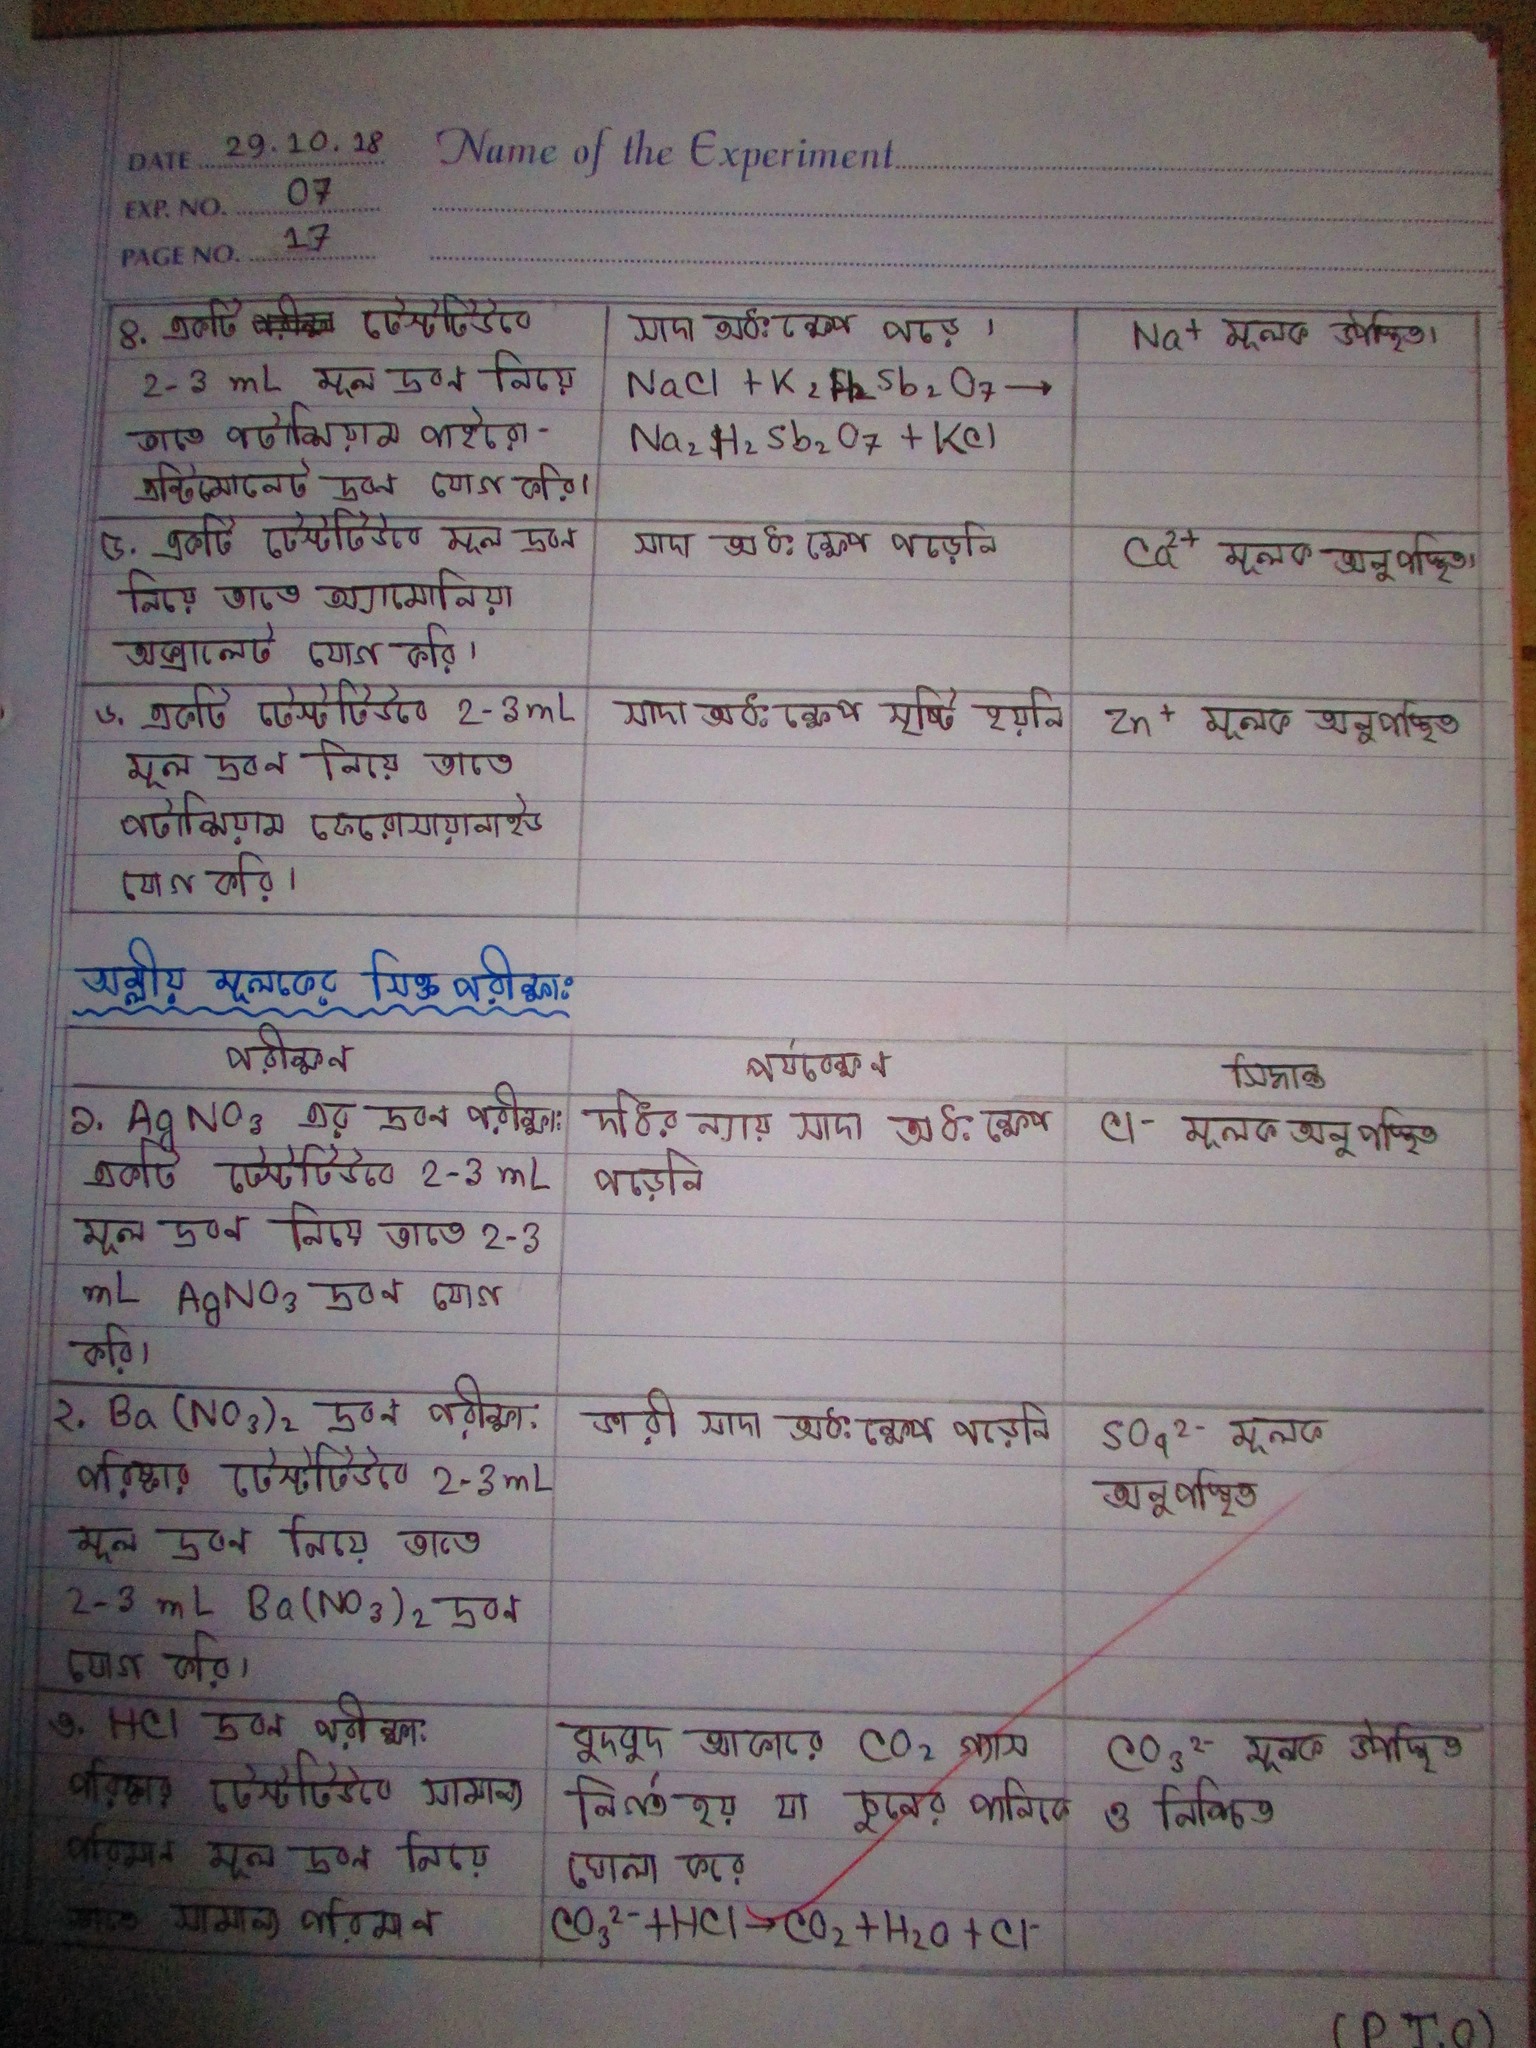 DATE 29.10.18 Name of the Experiment
EXP. NO. 07
PAGE NO. 17
৪. একটি টেস্টটিউবে
2-3 mL মূল দ্রবণ নিয়ে
তাতে পটাসিয়াম পাইরো-
এন্টিমোনেট দ্রবণ যোগ করি।
সাদা অধঃক্ষেপ পড়ে।
NaCl + K₂H₂Sb₂O₇ →
Na₂H₂Sb₂O₇ + KCl
Na⁺ মূলক উপস্থিত।
৫. একটি টেস্টটিউবে মূল দ্রবণ
নিয়ে তাতে অ্যামোনিয়া
অক্সালেট যোগ করি।
সাদা অধঃক্ষেপ পড়েনি
Ca²⁺ মূলক অনুপস্থিত।
৬. একটি টেস্টটিউবে 2-3mL
মূল দ্রবণ নিয়ে তাতে
পটাসিয়াম ফেরোসায়ানাইড
যোগ করি।
সাদা অধঃক্ষেপ সৃষ্টি হয়নি
Zn⁺ মূলক অনুপস্থিত
অম্লীয় মূলকের সিক্ত পরীক্ষাঃ
পরীক্ষণ
পর্যবেক্ষণ
সিদ্ধান্ত
১. AgNO₃ এর দ্রবণ পরীক্ষা:
একটি টেস্টটিউবে 2-3 mL
মূল দ্রবণ নিয়ে তাতে 2-3
mL AgNO₃ দ্রবণ যোগ
করি।
দধির ন্যায় সাদা অধঃক্ষেপ
পড়েনি
Cl⁻ মূলক অনুপস্থিত
২. Ba(NO₃)₂ দ্রবণ পরীক্ষা:
পরিষ্কার টেস্টটিউবে 2-3mL
মূল দ্রবণ নিয়ে তাতে
2-3 mL Ba(NO₃)₂ দ্রবণ
যোগ করি।
ভারী সাদা অধঃক্ষেপ পড়েনি
SO₄²⁻ মূলক
অনুপস্থিত
৩. HCl দ্রবণ পরীক্ষা:
পরিষ্কার টেস্টটিউবে সামান্য
পরিমাণ মূল দ্রবণ নিয়ে
তাতে সামান্য পরিমাণ
বুদবুদ আকারে CO₂ গ্যাস
নির্গত হয় যা চুনের পানিকে
ঘোলা করে
CO₃²⁻ + HCl → CO₂ + H₂O + Cl⁻
CO₃²⁻ মূলক উপস্থিত
ও নিশ্চিত
(P.T.O)